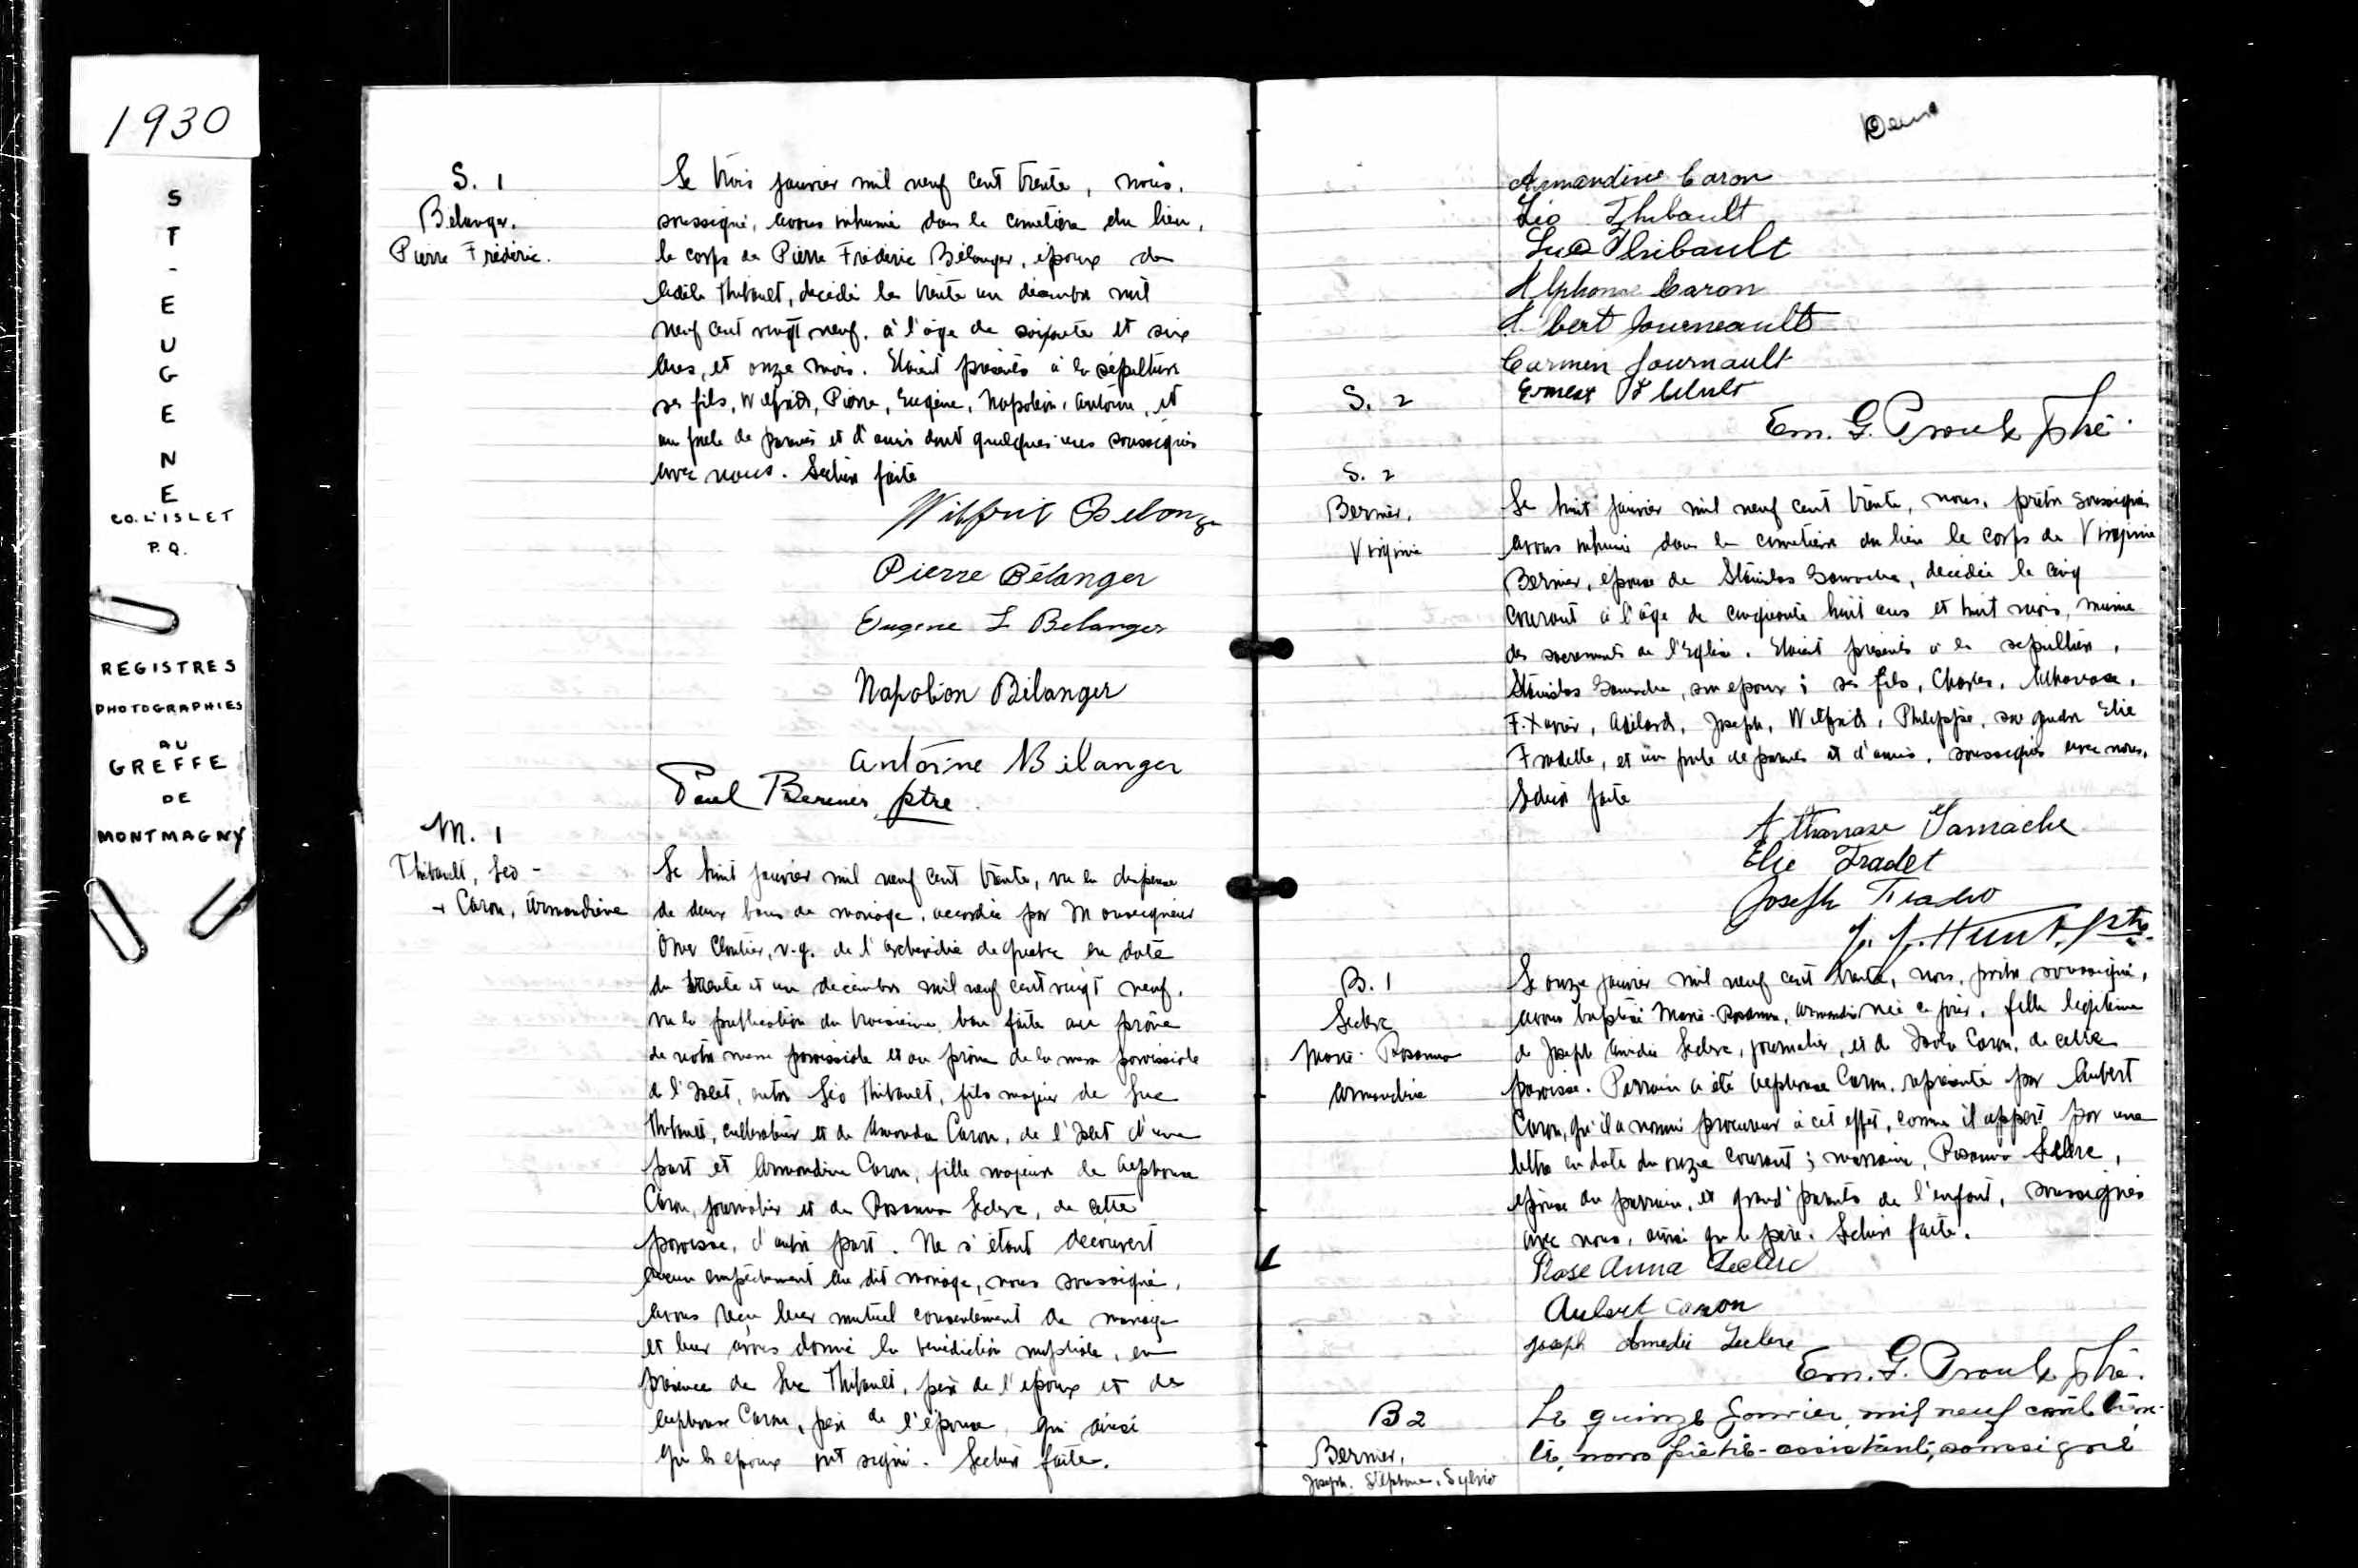 1930
ST-EUGENE
CO. L'ISLET
P.Q.
REGISTRES
PHOTOGRAPHIES
AU
GREFFE
DE
MONTMAGNY
S. 1
Bélanger,
Pierre Frédéric.
Le trois janvier mil neuf cent trente, nous,
soussigné, avons inhumé dans le cimetière du lieu,
le corps de Pierre Frédéric Bélanger, époux de
Thibault, décédé le trente un décembre mil
neuf cent vingt neuf, à l'âge de soixante et six
ans, et onze mois. Etaient présents à la sépulture
ses fils, Wilfrid, Pierre, Eugène, Napoléon, Antoine, et
une foule de parents et d'amis dont quelques uns soussignés
avec nous. Lecture faite
Wilfrit Belanger
Pierre Bélanger
Eugene L Belanger
Napoléon Bélanger
Antoine Bélanger
Paul Bernier, ptre.
M. 1
Thibault, Léo -
+ Caron, Armandine
Le huit janvier mil neuf cent trente, vu la dispense
de deux bans de mariage, accordée par Monseigneur
Omer Cloutier, v.g. de l'archevêché de Québec en date
du trente et un décembre mil neuf cent vingt neuf,
vu la publication du troisième ban faite au prône
de notre messe paroissiale et au prône de la messe paroissiale
de l'Islet, entre Léo Thibault, fils majeur de Luc
Thibault, cultivateur et de Amanda Caron, de l'Islet d'une
part et Armandine Caron, fille majeure de Alphonse
Caron, journalier et de Rosanna Leclerc, de cette
paroisse, d'autre part. Ne s'étant découvert
aucun empêchement au dit mariage, nous soussigné,
avons reçu leur mutuel consentement de mariage
et leur avons donné la bénédiction nuptiale, en
présence de Luc Thibault, père de l'époux et de
Alphonse Caron, père de l'épouse, qui ainsi
que les époux ont signé. Lecture faite.
Deux
Armandine Caron
Léo Thibault
Luc Thibault
Alphonse Caron
Albert Fourneault
Carmen Journault
Ernest
S. 2
Em. G. Proulx ptre.
S. 2
Bernier,
Virginie
Le huit janvier mil neuf cent trente, nous, prêtre soussigné,
avons inhumé dans le cimetière du lieu le corps de Virginie
Bernier, épouse de Stanislas Gamache, décédée le cinq
courant à l'âge de cinquante huit ans et huit mois, munie
des sacrements de l'Eglise. Etaient présents à la sépulture,
Stanislas Gamache, son époux; ses fils, Charles, Athanase,
F. Xavier, Adélard, Joseph, Wilfrid, Philippe, son gendre Elie
Fradette, et une foule de parents et d'amis, soussignés avec nous.
Lecture faite
Athanase Gamache
Elie Fradet
Joseph Fradet
J. J. Hunt, ptre.
B. 1
Leclerc
Marie-Rosanna
Armandine
Le onze janvier mil neuf cent trente, nous, prêtre soussigné,
avons baptisé Marie-Rosanna, Armandine née ce jour, fille légitime
de Joseph Amédée Leclerc, journalier, et de Caron, de cette
paroisse. Parrain a été Alphonse Caron, représenté par Aubert
Caron, qu'il a nommé procureur à cet effet, comme il appert par une
lettre en date du onze courant; marraine, Rosanna Leclerc,
épouse du parrain, et grand'parents de l'enfant, soussignés
avec nous, ainsi que le père. Lecture faite.
Rose Anna Leclerc
Aubert Caron
Joseph Amedée Leclerc
Em. G. Proulx ptre.
B 2
Bernier,
Joseph, Alphonse, Sylvio
Le quinze janvier, mil neuf cent tren-
te, nous prêtre-assistant, soussigné